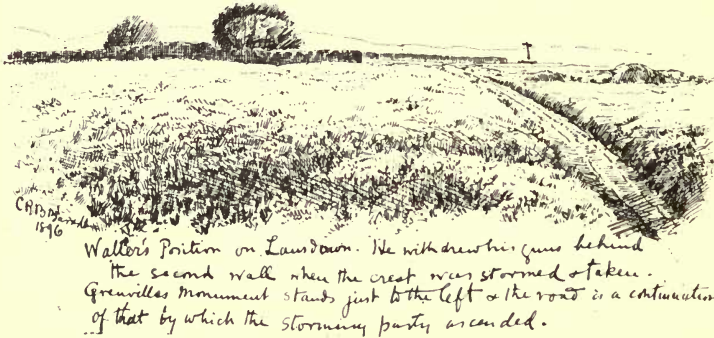 CRBB
1896
Waller's Position on Lansdown. He withdrew his guns behind
the second wall when the crest was stormed & taken.
Grenvilles Monument stands just to the left & the road is a continuation
of that by which the storming party ascended.